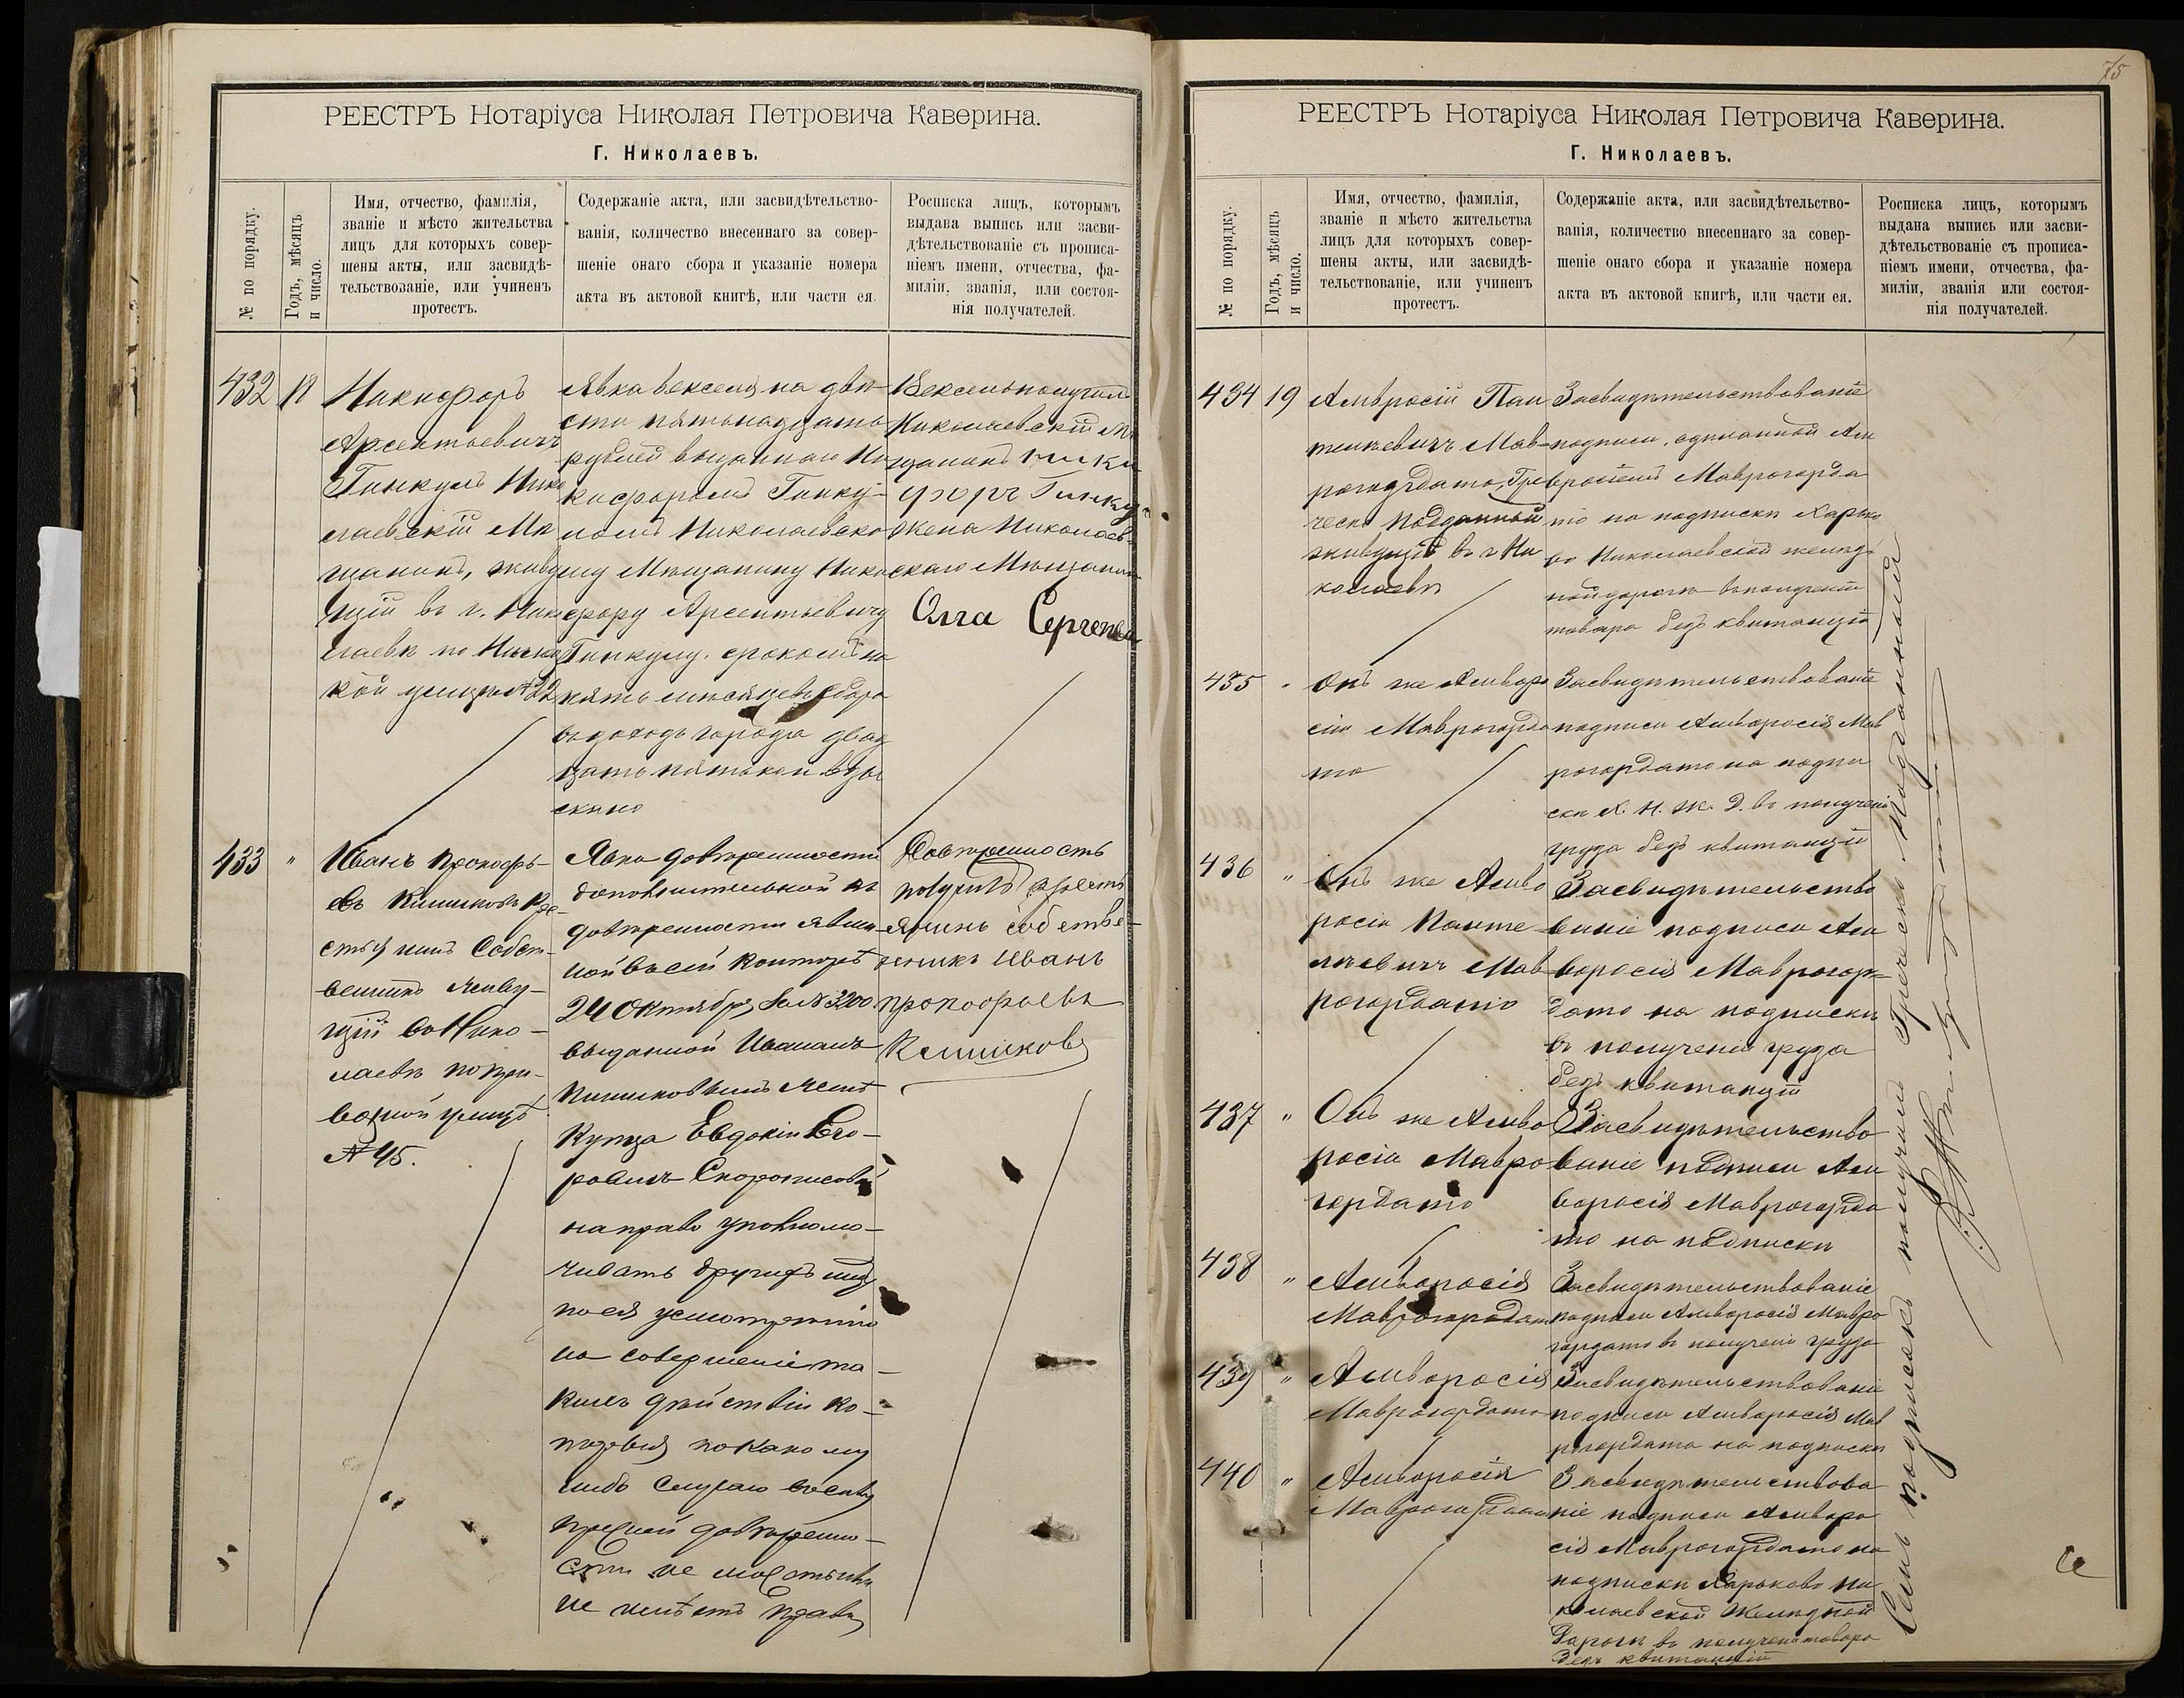 РЕЕСТРЪ Нотаріуса Николая Петровича Каверина.
Г. Николаевъ.
№ по порядку.
Годъ, мѣсяцъ
и число.
Имя, отчество, фамилія,
званіе и мѣсто жительства
лицъ для которыхъ совер-
шены акты, или засвидѣ-
тельствованіе, или учиненъ
протестъ.
Содержаніе акта, или засвидѣтельство-
ванія, количество внесеннаго за совер-
шеніе онаго сбора и указаніе номера
акта въ актовой книгѣ, или части ея.
Росписка лицъ, которымъ
выдана выпись или засви-
дѣтельствованіе съ прописа-
ніемъ имени, отчества, фа-
миліи, званія, или состоя-
нія получателей.
432
18
Никифоръ
Арсентьевичъ
Гинкулъ Нико
лаевскій Мѣ
щанинъ, живу
щій въ г. Нико
лаевѣ по
кой улицѣ № 22
Явка векселя на двѣ
сти пятьнадцать
рублей выданнаго Ни
кифоромъ Гинку-
ломъ Николаевско
му Мѣщанину Ники
фору Арсентьевичу
Гинкулу. срокомъ на
пять мѣсяцевъ Сбора
въ доходъ города двад
цать пять коп взы
скано
Вексель получил
Николаевскій Мѣ
щанинъ Ники
форъ Гинкул
жена Николаев-
скаго Мѣщанина
Олга Сергеева
433
"
Иванъ Прокофь-
евъ Кре-
стьянинъ Собст-
венникъ живу-
щій въ Нико-
лаевѣ по
улицѣ
№ 45.
Явка довѣренности
дополнительной къ
довѣренности явлен-
ной въ сей Конторѣ
24 Октября за № 3200
выданной Иваномъ
женѣ
Купца Евдокіи Его-
ровнѣ
на право уполномо-
чивать другихъ лицъ
по ея усмотрѣнію
на совершеніе та-
кихъ дѣйствій ко-
торыя по какому
либо случаю въ силу
прежней довѣренно-
сти не могъ
не имѣетъ права
Довѣренность
получилъ Кресть
янинъ собстве-
никъ Иванъ
Прокофьевъ
РЕЕСТРЪ Нотаріуса Николая Петровича Каверина.
Г. Николаевъ.
75
№ по порядку.
Годъ, мѣсяцъ
и число.
Имя, отчество, фамилія,
званіе и мѣсто жительства
лицъ для которыхъ совер-
шены акты, или засвидѣ-
тельствованіе, или учиненъ
протестъ.
Содержаніе акта, или засвидѣтельство-
ванія, количество внесеннаго за совер-
шеніе онаго сбора и указаніе номера
акта въ актовой книгѣ, или части ея.
Росписка лицъ, которымъ
выдана выпись или засви-
дѣтельствованіе съ прописа-
ніемъ имени, отчества, фа-
миліи, званія или состоя-
нія получателей.
434
19
Амвросій Пан
телевичъ Мав-
рогордато, Гре
ческо подданный
живущій въ г Ни
колаевѣ
Засвидѣтельствованіе
подписи, сдѣланной Ам
вросіемъ Маврогорда
то на подпискѣ Харько
во Николаевской желѣз
ной дороги въ полученіи
товара безъ квитанціи
435
"
Онъ же Амвро
сій Маврогорда
то
Засвидѣтельствованіе
подписи Амвросія Мав
рогордато на подпи
скѣ Х. Н. Ж. Д. въ полученіи
груза безъ квитанціи
436
"
Онъ же Амв
росій Панте
левичъ Мав
рогордато
Засвидѣтельство
ваніе подписи Ам
вросія Маврогор-
дато на подпискѣ
въ полученіи груза
безъ квитанціи
437
"
Онъ же Амв
росій Мавро
гордато
Засвидѣтельство
ваніе подписи Ам
вросія Маврогорда
то на подпискѣ
438
"
Амвросій
Маврогордато
Засвидѣтельствованіе
подписи Амвросія Мавро
гордато въ полученіи груза
439
"
Амвросій
Маврогордато
Засвидѣтельствованіе
подписи Амвросія Мав
рогордато на подпискѣ
440
"
Амвросій
Маврогордато
Засвидѣтельствова
ніе подписи Амвро
сія Маврогордато на
подпискѣ Харьково Ни
колаевской Желѣзной
Дороги въ полученіи товара
безъ квитанціи
Семь подписокъ получилъ Греческо подданный